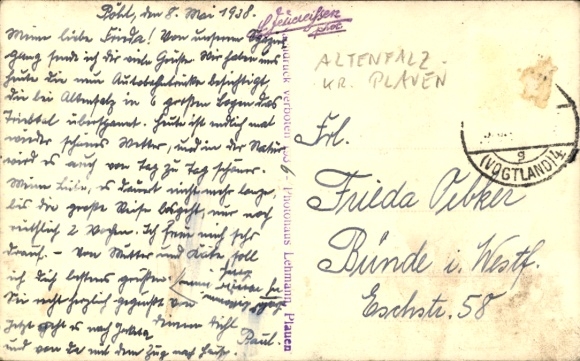 Pöhl, den 8. Mai 1938.
Meine liebe Frieda! Von unserem Spazier-
gang sende ich dir viele Grüße. Wir haben uns
heute die neue Autobahnbrücke besichtigt,
die bei Altenfalz in 6 großen Bogen das
Triebtal überspannt. Heute ist endlich mal
wieder schönes Wetter, und in der Natur
wird es auch von Tag zu Tag schöner.
Meine Liebe, es dauert nicht mehr lange,
bis die große Reise losgeht, nur noch
2 Wochen. Ich freue mich sehr
drauf. – Von Mutter und soll
ich dich bestens grüßen.
Sei recht herzlich gegrüßt von
deinem Paul.
Jetzt geht es nach
und von da mit dem Zug nach Hause.
phot.
Nachdruck verboten 6 Photohaus Lehmann, Plauen
ALTENFALZ
KR. PLAUEN
(VOGTLAND) 4
g
Frl.
Frieda Oebker
Bünde i. Westf.
Eschstr. 58